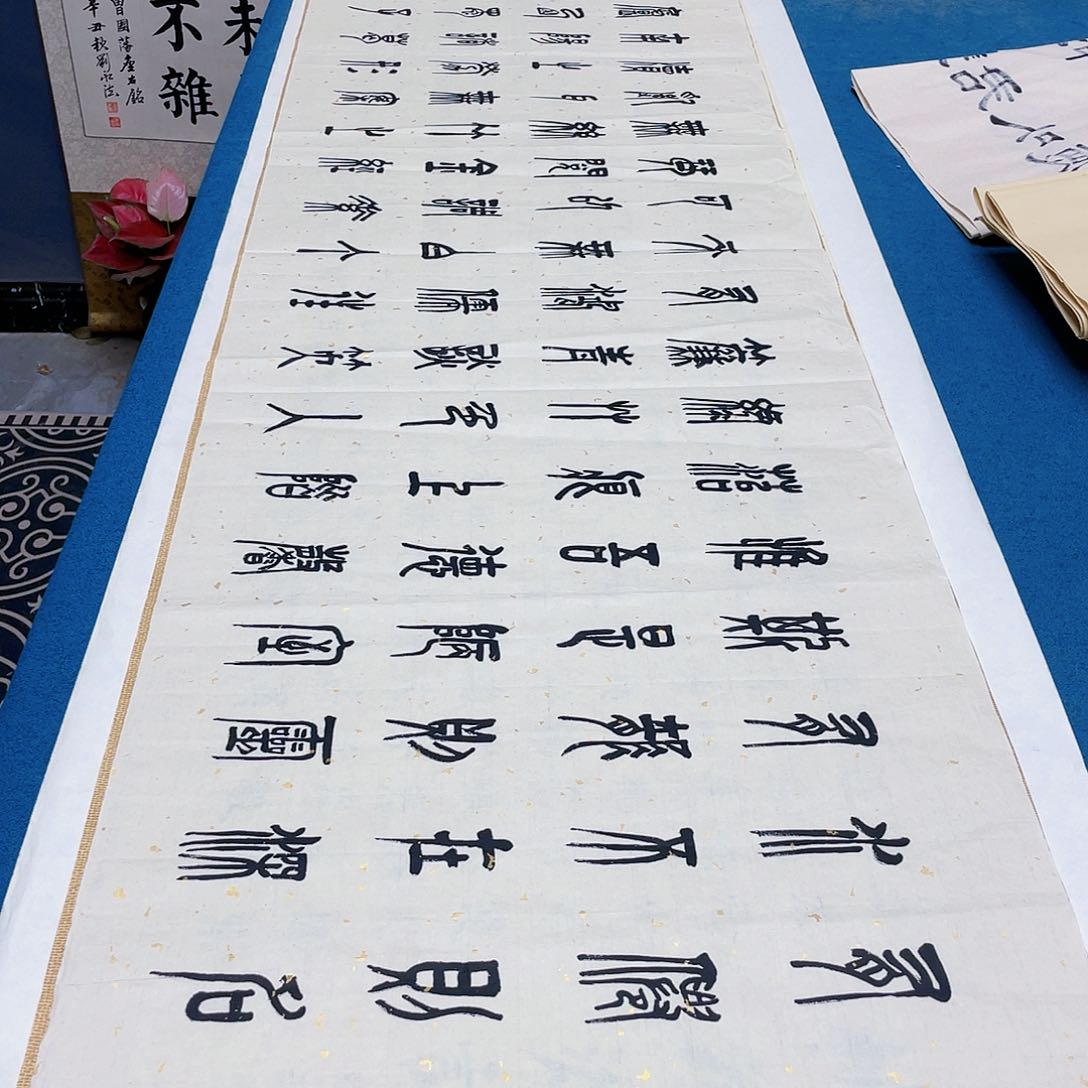 有僊則名
水不在深
有龍則靈
斯是陋室
惟吾德馨
苔痕上階
綠艸色入
簾青談笑
有鴻儒往
來無白丁
可以調素
琴閱金經
無絲竹之
亂耳無案
牘之勞形
南陽諸葛
廬西蜀子
未
不雜
曾國藩座右銘
辛丑秋劉